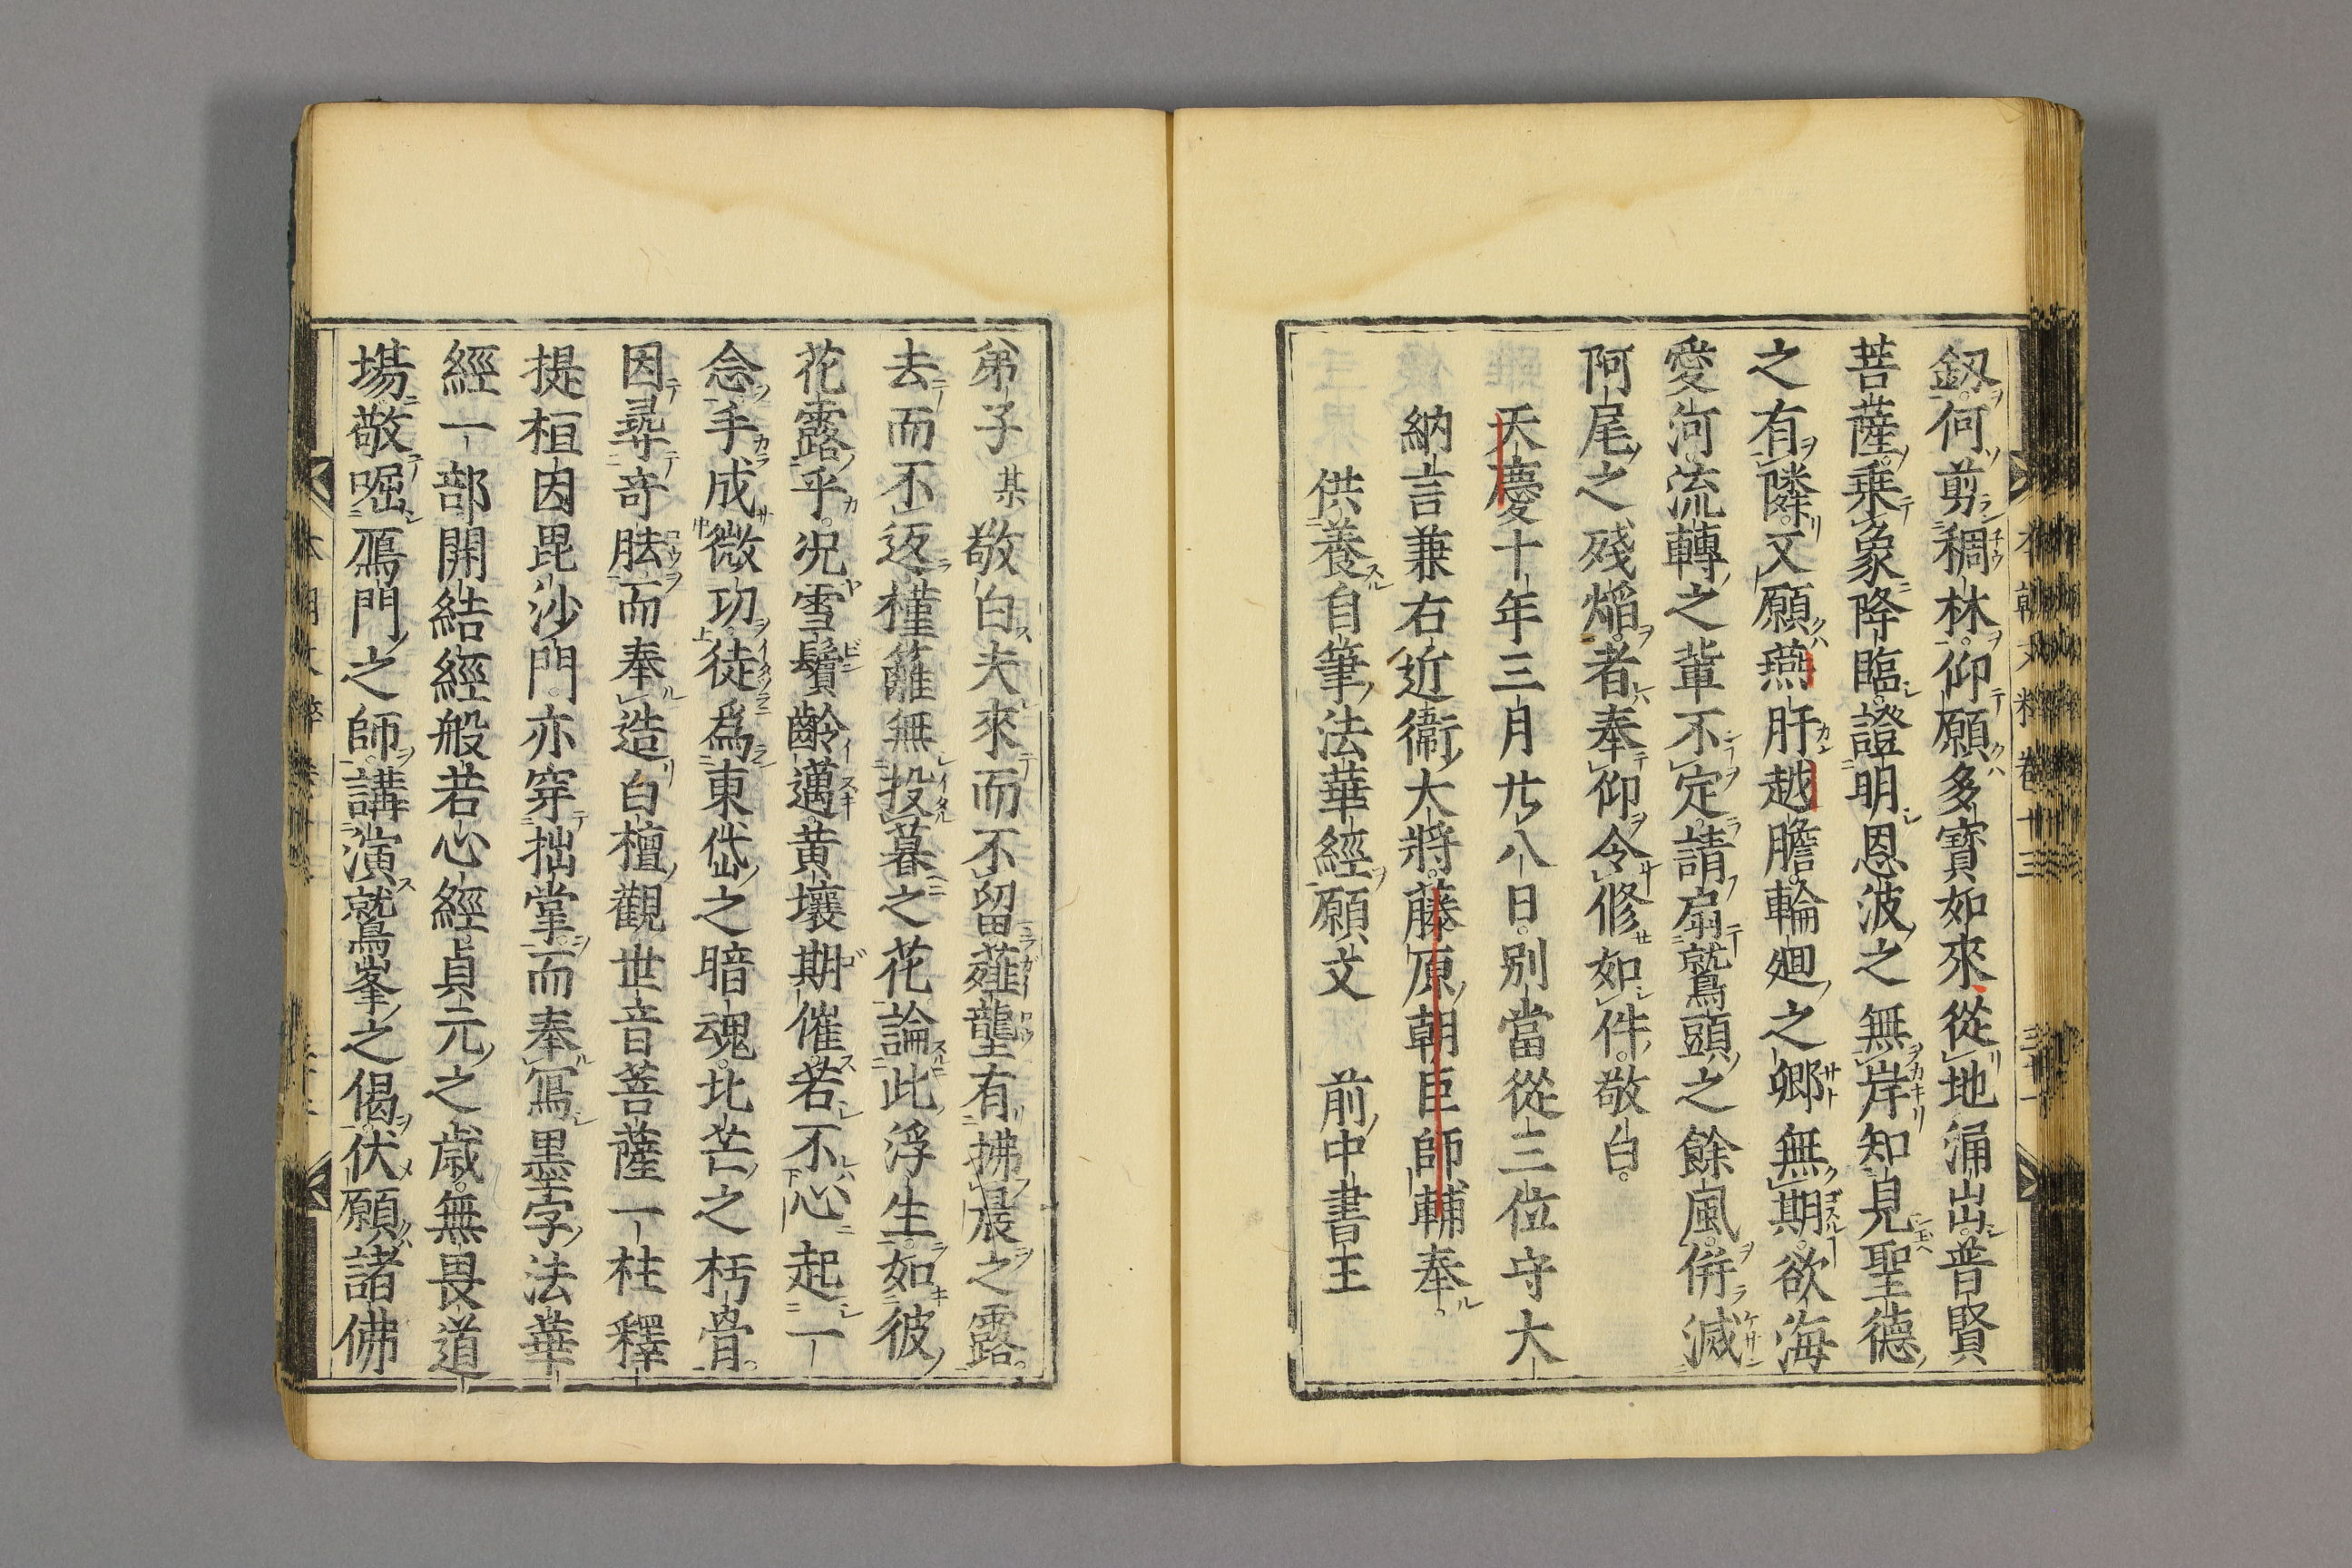 釼何剪稠林仰願多寳如來從地涌出普賢
菩薩乗象降臨證明恩波之無岸知見聖德
之有隣又願燕肝越膽輪廻之郷無期欲海
愛河流轉之輩不定請扇鷲頭之餘風併滅
阿尾之殘焔者奉仰令修如件敬白
天慶十年三月廿八日別當從三位守大
納言兼右近衞大將藤原朝臣師輔奉
供養自筆法華經願文 前中書王
弟子某敬白夫來而不留薤壟有拂晨之露
去而不返槿籬無投暮之花論此浮生如彼
花露乎況雪鬢齡邁黃壤期催若不心起一
念手成微功徒爲東岱之暗魂北芒之朽骨
因尋竒胠而奉造白檀觀世音菩薩一柱釋
提桓因毘沙門亦穿拙掌而奉冩墨字法華
經一部開結經般若心經貞元之歳無畏道
塲敬啒鴈門之師講演鷲峯之偈伏願諸佛
本朝文粹卷十三